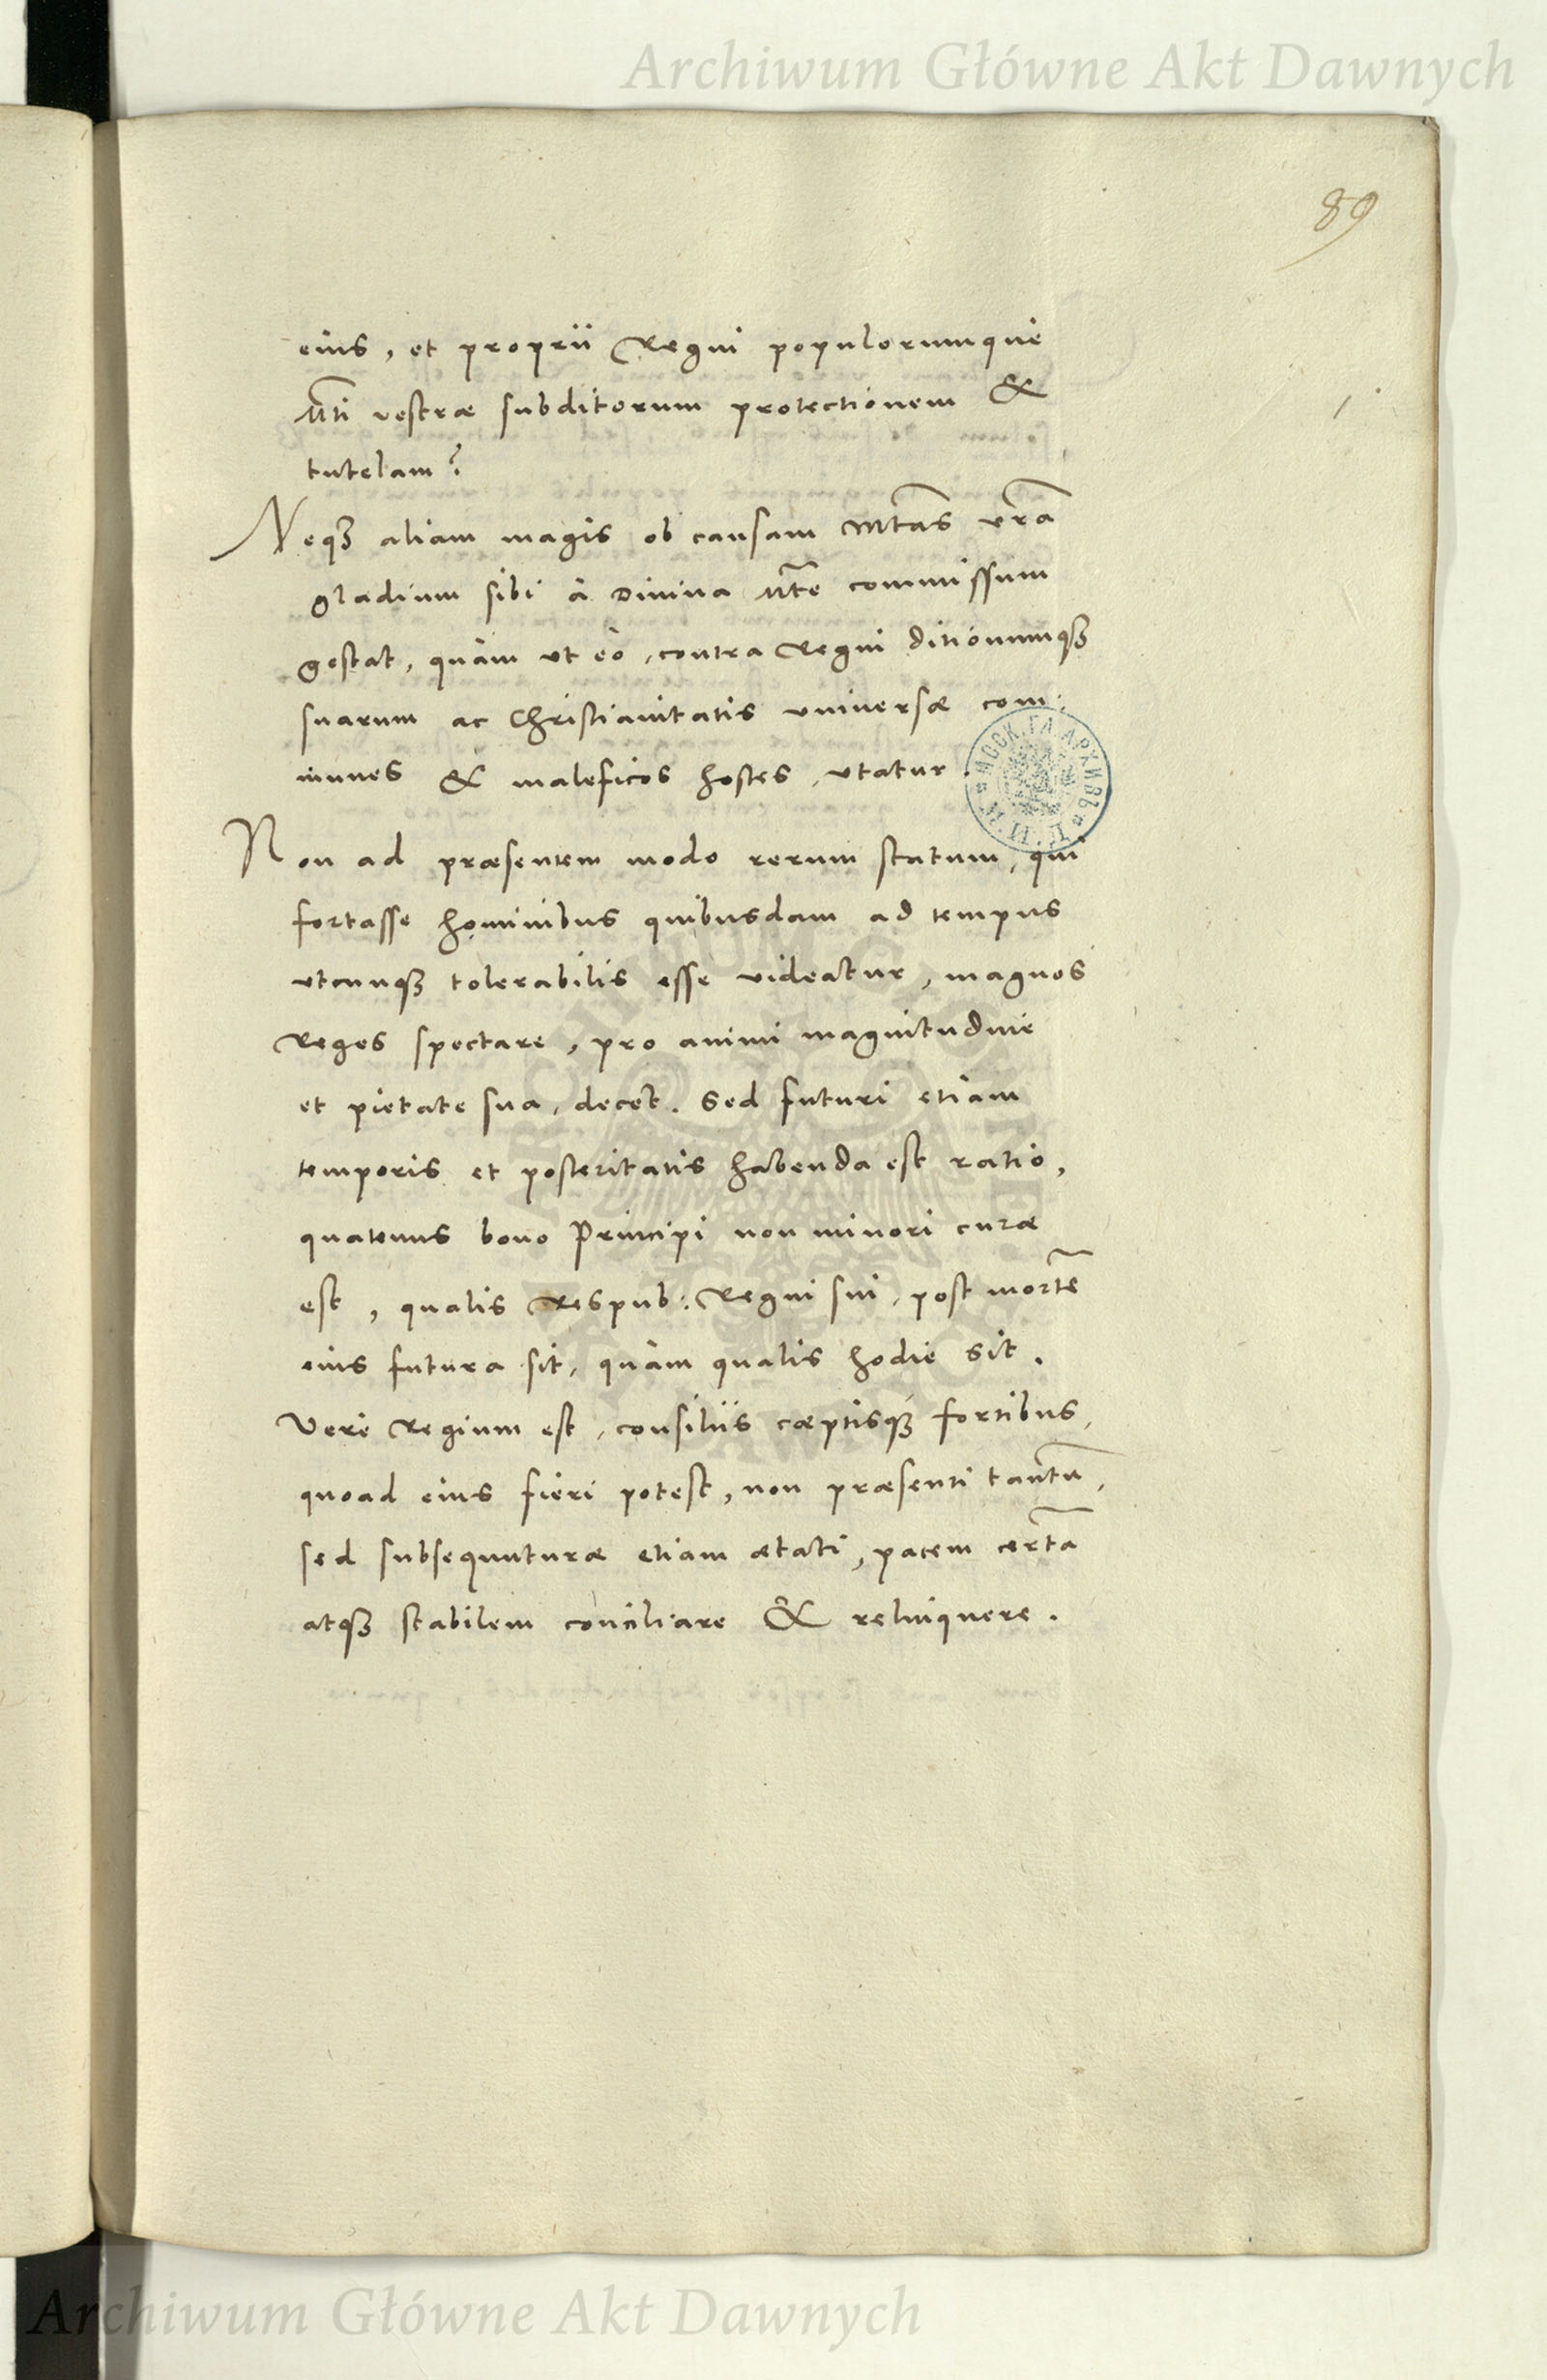 Archiwum Główne Akt Dawnych
89
eius, et proprii Regni populorumque
Mti vestræ subditorum protectionem &
tutelam?
Neqꝫ aliam magis ob causam Mtas vra
gladium sibi à Divina Mte commissum
gestat, quàm ut eò, contra Regni ditionumqꝫ
suarum ac Christianitatis universæ com:
munes & maleficos hostes, utatur.
Non ad præsentem modo rerum statum, qui
fortasse hominibus quibusdam ad tempus
utcunqꝫ tolerabilis esse videatur, magnos
Reges spectare, pro animi magnitudine
et pietate sua, decet. Sed futuri etiam
temporis et posteritatis habenda est ratio,
quatenus bono Principi non minori curæ
est, qualis Respub: Regni sui, post mortẽ
eius futura sit, quàm qualis hodie sit.
Verè Regium est, consiliis cæptisqꝫ fortibus,
quoad eius fieri potest, non præsenti tantũ,
sed subsequuturæ etiam ætati, pacem certã
atqꝫ stabilem conciliare & relinquere.
Archiwum Główne Akt Dawnych